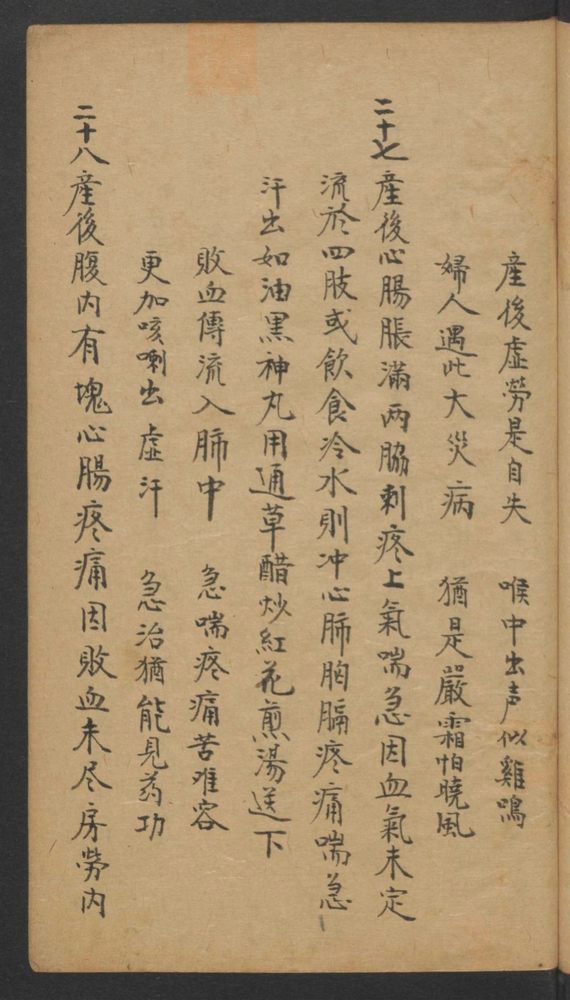 産後虚勞是自失　喉中出声似雞鳴
婦人遇此大災病　猶是嚴霜怕曉風
二十七産後心腸脹滿两脇刺疼上氣喘急因血氣未定
流於四肢或飲食冷水則冲心肺胸膈疼痛喘急
汗出如油黒神丸用通草醋炒紅花煎湯送下
敗血傳流入肺中　急喘疼痛苦难容
更加咳喇出虚汗　急治猶能見药功
二十八産後腹内有塊心腸疼痛因敗血未尽房勞内